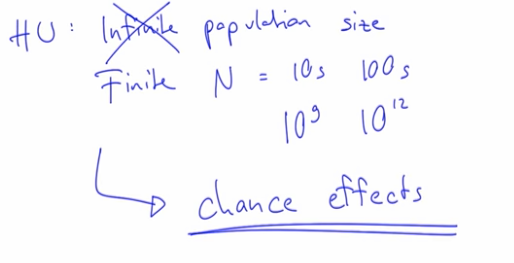 HU: Infinite population size
Finite N = 10s 100s
10⁹ 10¹²
chance effects